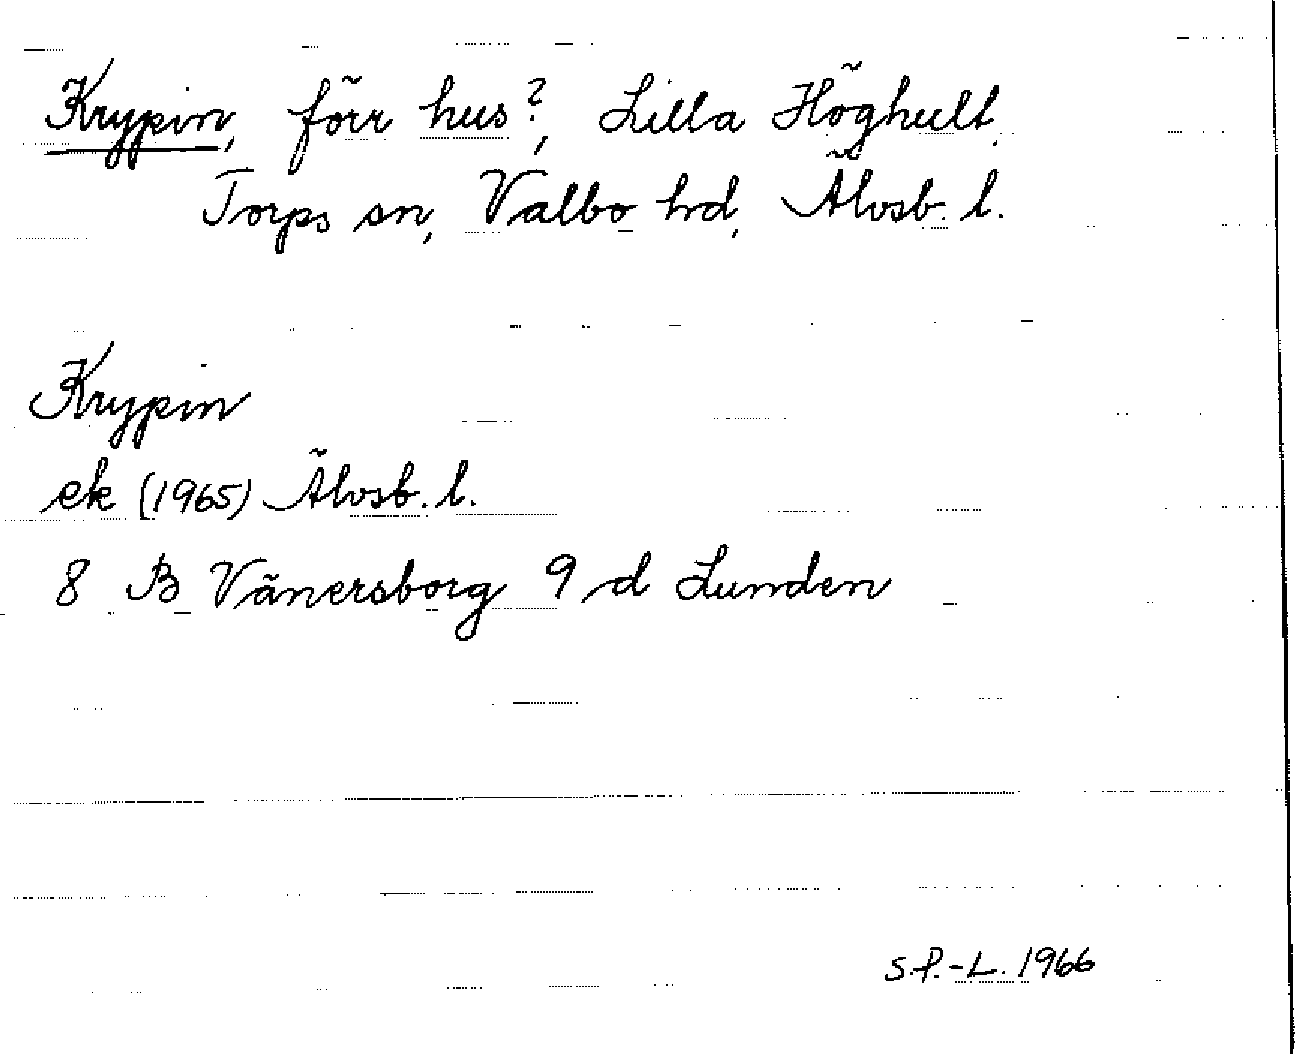 Krypin, förr hus?, Lilla Höghult,
Torps sn, Valbo hrd, Älvsb. l.
Krypin
ek (1965) Älvsb. l.
8 B Vänersborg 9 d Lunden
S.P.-L. 1966